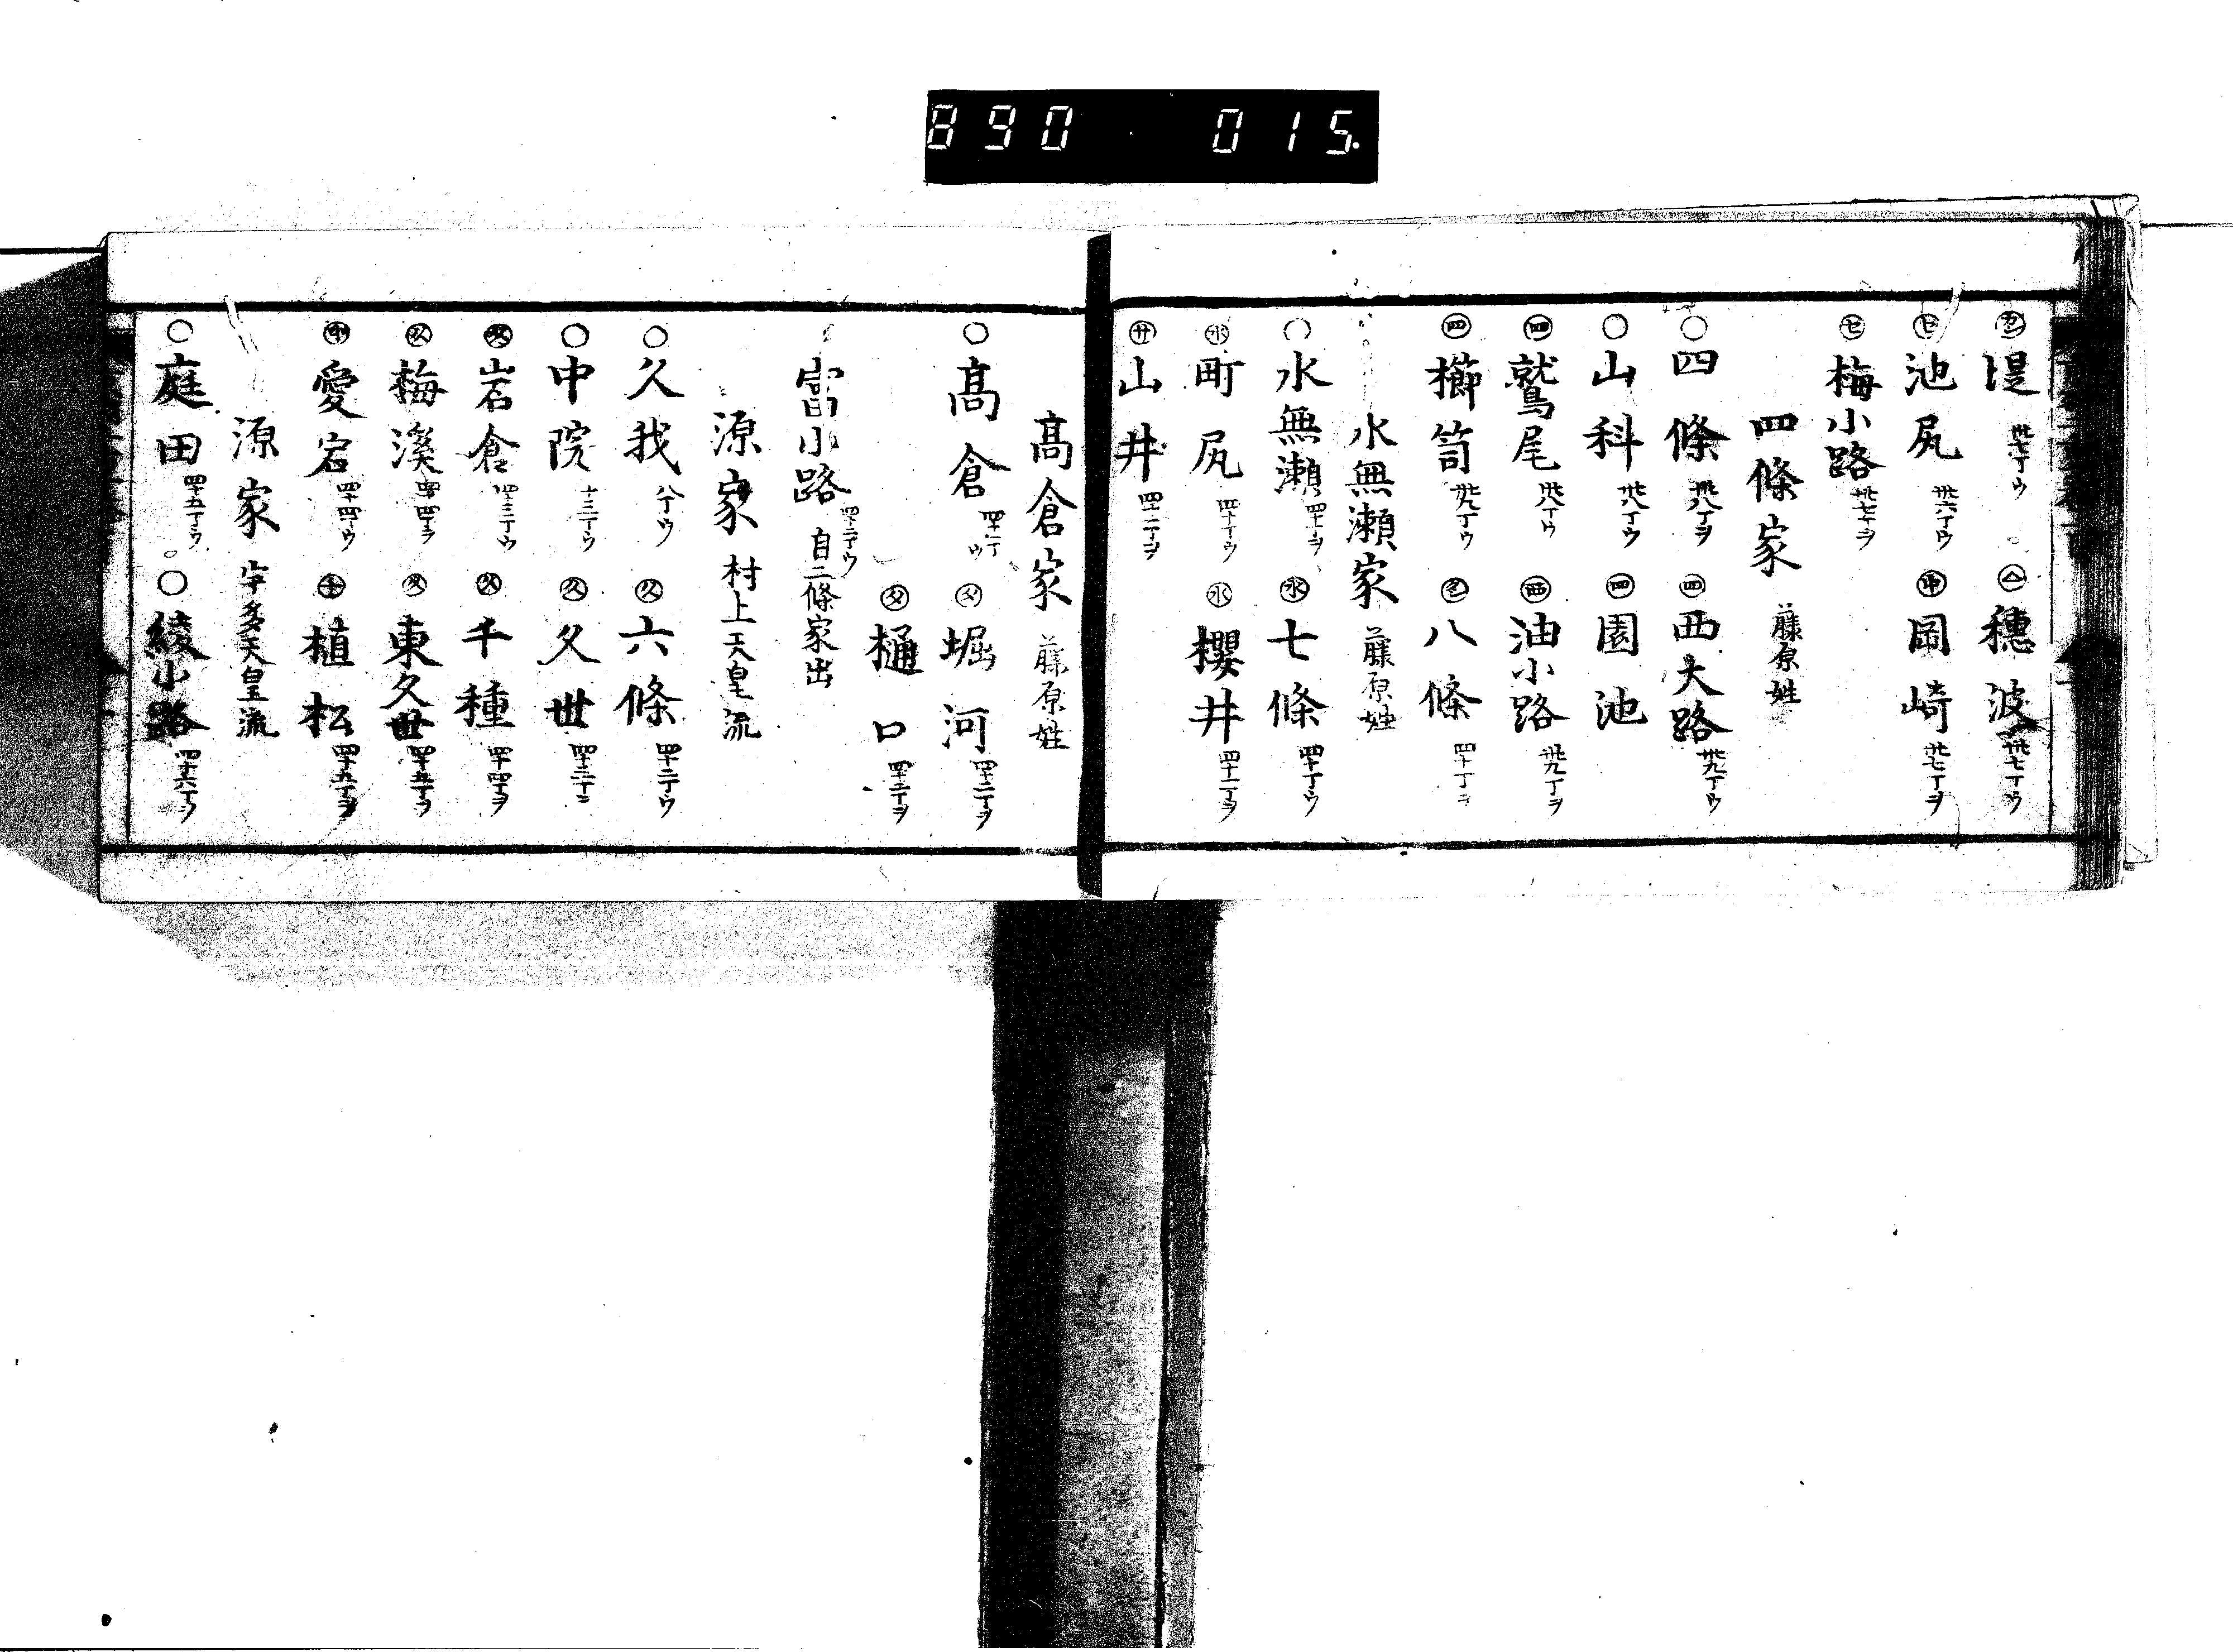 890 015
堤 卅七丁ウ 穗波 卅七丁ウ
池尻 卅六丁ウ 岡崎 卅七丁ヲ
梅小路 卅七丁ヲ
四條家 藤原姓
四條 卅八丁ヲ 四 西大路 卅九丁ウ
山科 卅八丁ウ 四 園池
四 鷲尾 卅八丁ウ 四 油小路 卅九丁ヲ
四 櫛笥 卅九丁ウ 八條 四十丁
水無瀬家 藤原姓
水無瀬 四十丁ヲ 水 七條 四十丁ウ
水 町尻 四十丁ウ 水 櫻井 四十一丁ヲ
山井 四十二丁ヲ
髙倉家 藤原姓
髙倉 四十一丁ウ 堀河 四十二丁ヲ
樋口 四十二丁ヲ
冨小路 四十二丁ウ 自二條家出
源家 村上天皇流
久我 八丁ウ 久 六條 四十二丁ウ
中院 十三丁ウ 久 久世 四十三丁
岩倉 四十三丁ウ 久 千種 四十四丁ヲ
久 梅溪 四十四丁ヲ 東久世 四十五丁ヲ
愛宕 四十四丁ウ 植松 四十五丁ヲ
源家 宇多天皇流
庭田 四十五丁ウ 綾小路 四十六丁ヲ